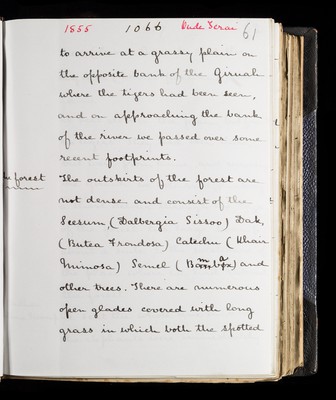 1855 1066 61
to arrive at a grassy plain on
the opposite bank of the Giruah
where the tigers had been seen,
and on approaching the bank
of the river we passed over some
recent footprints.
forest
The outskirts of the forest are
not dense and consist of the
Seesum, (Dalbergia Sissoo) Dak,
(Butea Frondosa) Catechu (Khair
Mimosa) Semel ( and
other trees. There are numerous
open glades covered with long
grass in which both the spotted